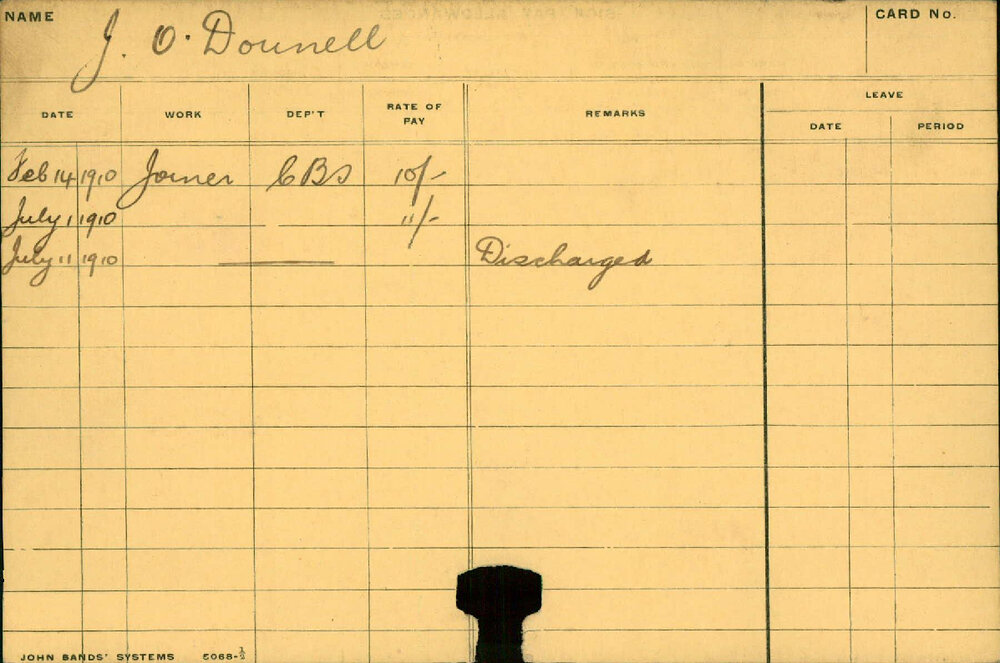 NAME J. O'Donnell CARD No.
LEAVE
DATE WORK DEP'T RATE OF PAY REMARKS DATE PERIOD
Feb 14 1910 Joiner CBS 10/-
July 1 1910 11/-
July 11 1910 Discharged
JOHN SANDS' SYSTEMS 5068-½